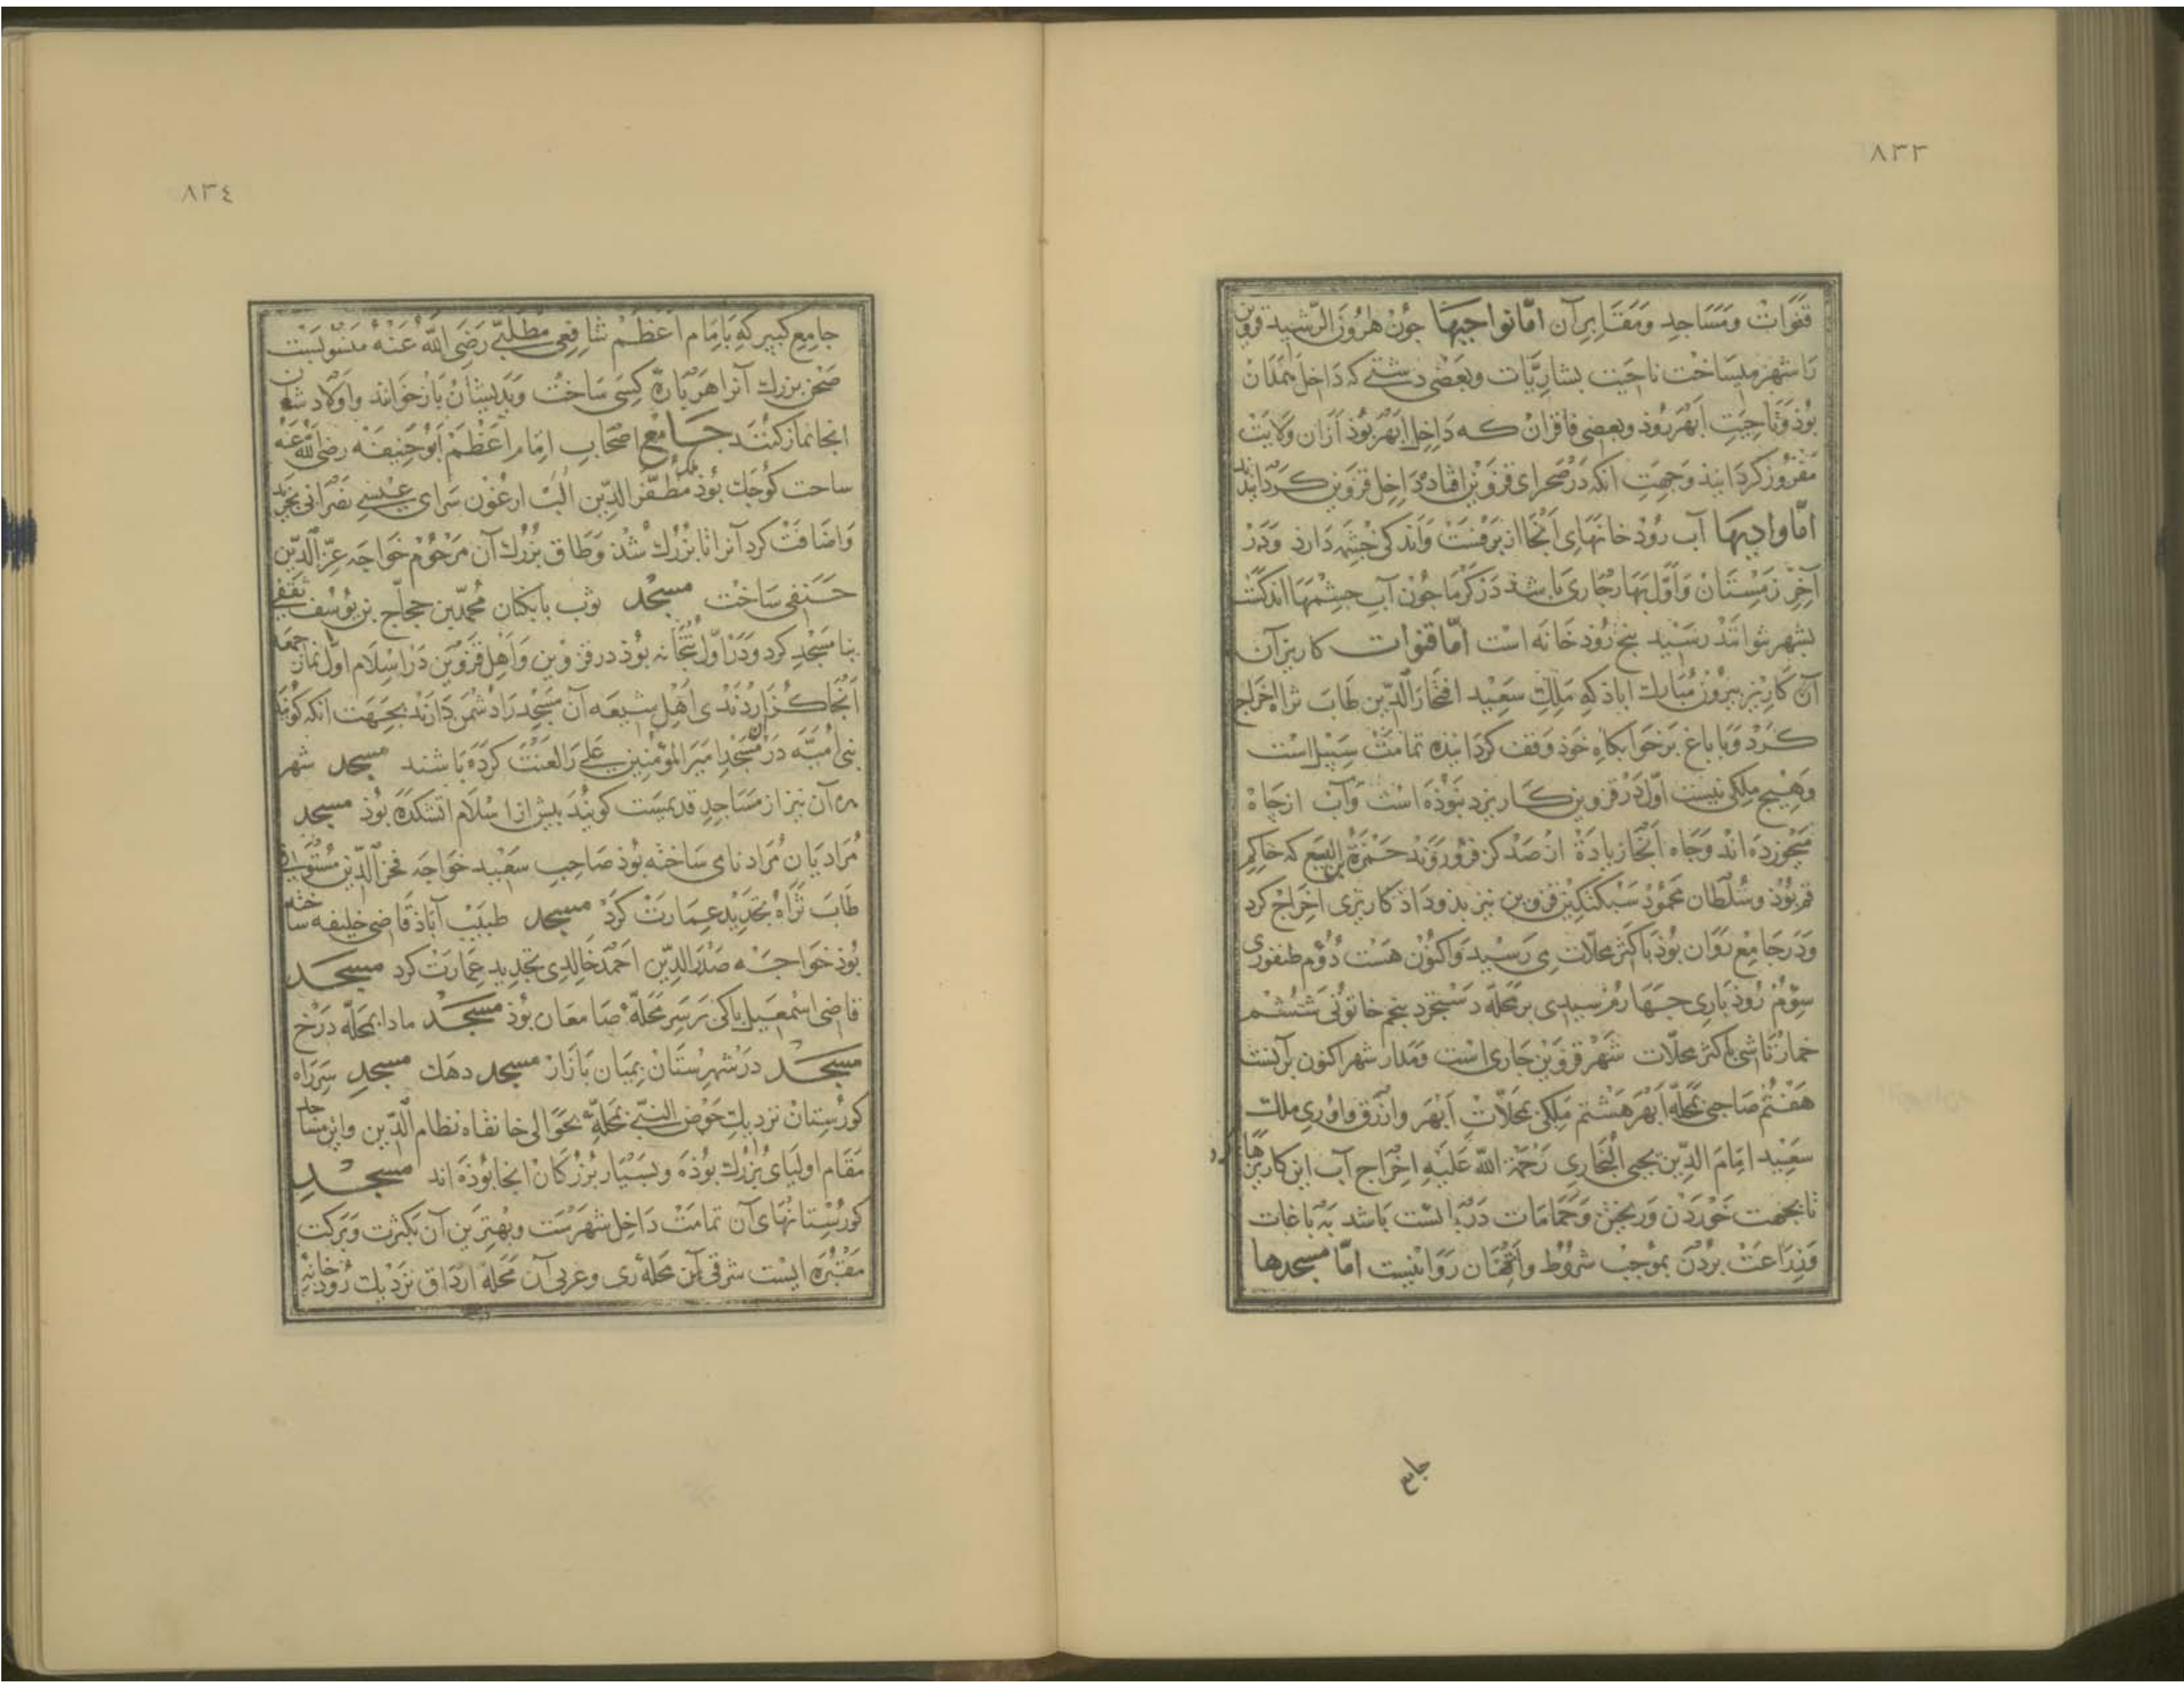 ٨٣٣
قنوات ومساجد ومقابر آن امّا نواحیها چون هرون الرّشید قزوین
را شهر میساخت ناحیت بشاریّات وبعضی دشتی که داخل همدان
بوذ وناحیت ابهررود وبعضی قاقزان که داخل ابهر بوذ ازان ولایت
مفروز کردانید وجهت انکه در صحرای قزوین افتاده داخل قزوین کردانید
امّا وادیها آب روذخانهای انجا از برفست واندکی چشمه دارد ودر
آخر زمستان واوّل بهار جاری باشد در کرما چون آب چشمها اندکست
بشهر نتوانند رسید پنج روذخانه است امّا قنوات کاریز آن
آن کاریز پیروز مبارک اباذ که ملک سعید افتخار الدّین طاب ثراه اخراج
کرد وبا باغ بر خوابکاه خوذ وقف کردانیده تمامت سبیل است
وهیچ ملکی نیست اوّل در قزوین کاریز نبوذه است وآب از چاه
میخورده اند وچاه انجا زیادة از صد کز فرو روند حمزة بن الیسع که حاکم
قم بوذ وسلطان محمود سبکتکین قزوین نیز بذو داذ کاریزی اخراج کرد
ودر جامع روان بوذ باکثر محلات می رسید واکنون هست دوّم طیفوری
سوّم روذباری چهارم سیدی بر محلّه دستجرد پنجم خاتونی ششم
خمارتاشی باکثر محلّات شهر قزوین جاری است ومدار شهر اکنون برآنست
هفتم صاحبی بمحلّه ابهر هشتم ملکی بمحلّات ابهر وارزق واوری ملک
سعید امام الدّین یحیی البخاری رحمة الله علیه اخراج آب این کاریزها کرد
تا بجهت خوردن وریختن وحمامات دربایست باشد به باغات
وزراعت بردن بموجب شروط واقفان روا نیست امّا مسجدها
جامع
٨٣٤
جامع کبیر که بامام اعظم شافعی مطلبی رضی الله عنه منسوبست
صحن بزرک آنرا هر پاره کسی ساخت وبدیشان بازخوانند واولاد شان
انجا نماز کنند جامع اصحاب امام اعظم ابوحنیفه رضی الله عنه
ساحت کوچک بوذ ملک مظفّر الدّین الب ارغون سرای عیسی نصرانی بخرید
واضافت کرد آنرا تا بزرک شذ وطاق بزرک آن مرحوم خواجه عزّ الدّین
حنفی ساخت مسجد توب بابکان محمّد بن حجاج بن یوسف ثقفی
بنا مسجد کرد ودر اوّل بتخانه بوذ در قزوین واهل قزوین در اسلام اوّل نماز جمعه
انجا کزاردندی اهل شیعه آن مسجد را دشمن دارند بجهت انکه کویند
بنی امیّه در ان مسجد امیر المؤمنین علی را لعنت کرده باشند مسجد شهر
ره آن نیز از مساجد قدیمست کویند پیش از اسلام اتشکده بوذ مسجد
مرادیان مراد نای ساخته بوذ صاحب سعید خواجه فخر الدّین مستوفی
طاب ثراه بتجدید عمارت کرد مسجد طبیب آباذ قاضی خلیفه ساخته
بوذ خواجه صدر الدّین احمد خالدی بتجدید عمارت کرد مسجد
قاضی اسمعیل باکی بر سر محلّه صامعان بوذ مسجد مادا بمحلّه درخ
مسجد در شهرستان بمیان بازار مسجد دهک مسجد سر راه
کورستان نزدیک حوض النبی بمحلّه بحوالی خانقاه نظام الدّین واین مساجد
مقام اولیای بزرک بوذه وبسیار بزرکان انجا بوذه اند مسجد
کورستانهای آن تمامت داخل شهرست وبهترین آن بکثرت وبرکت
مقبره ایست شرقی آن محلّه ری وغربی آن محلّه ارداق نزدیک روذخانه